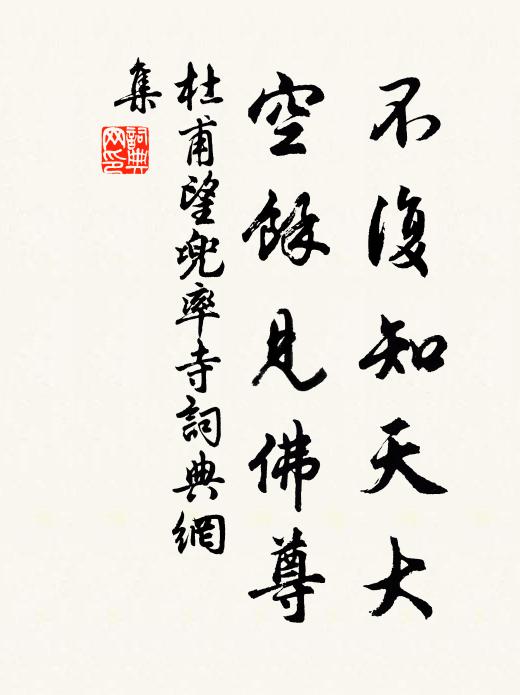 不復知天大
空餘見佛尊
杜甫望兜率寺詞典網
集
詞典
网印